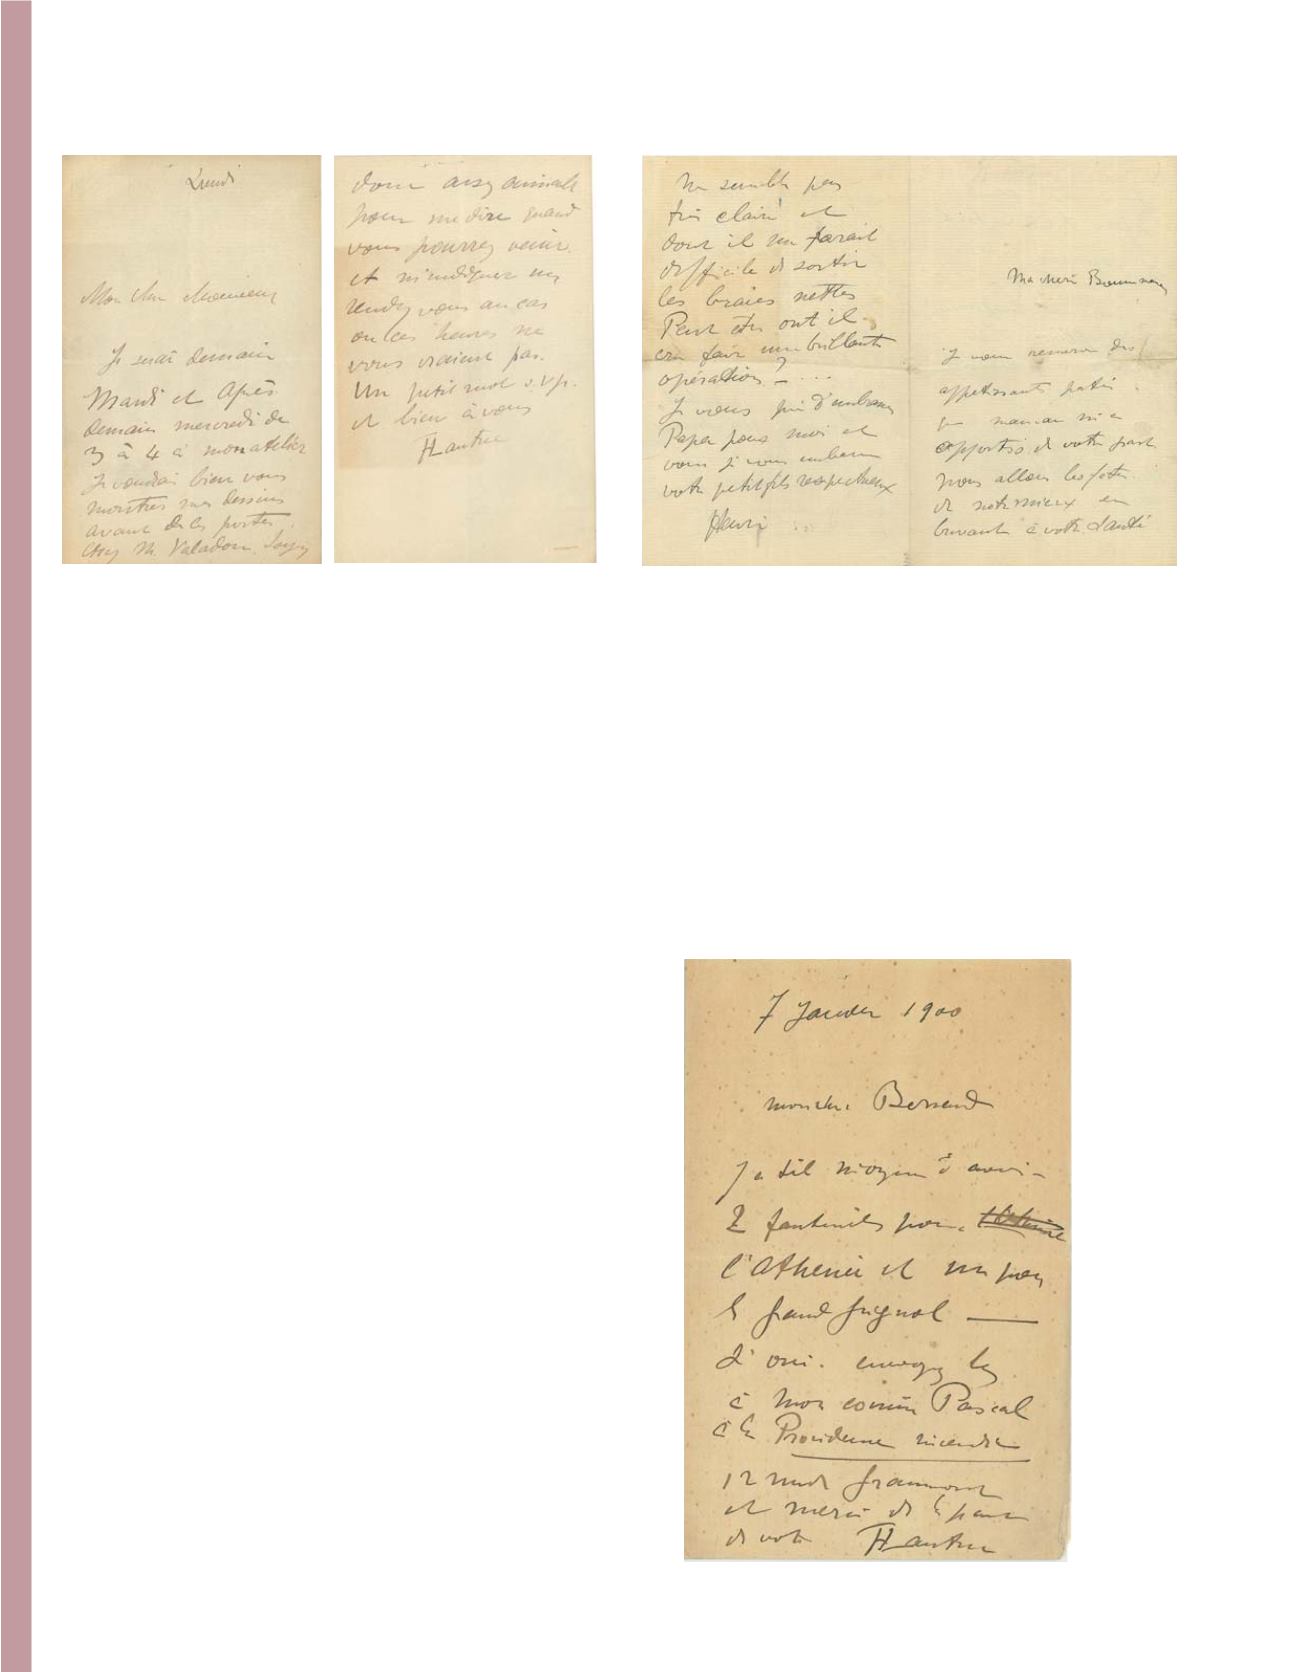 Lundi
Mon cher Monsieur
Je serai demain
Mardi et Après
demain mercredi de
3 à 4 à mon atelier
Je voudrais bien vous
montrer mes dessins
avant de les porter
chez M. Valadon. Soyez
donc assez aimable
pour me dire quand
vous pourrez venir.
et m'indiquer un
rendez vous au cas
ou ces heures ne
vous iraient pas.
Un petit mot s.v.p.
et bien à vous
HLautrec
me semble pas
très clair et
dont il me parait
difficile de sortir
les braies nettes
Peut etre ont il
cru faire une brillante
opération ? - ...
Je vous prie d'embrasser
Papa pour moi et
vous je vous embrasse
votre petit fils respectueux
Henri
Ma chère Bonne maman
Je vous remercie des
appetissants patés
que maman m'a
apportés de votre part
nous allons les fêter
de notre mieux en
buvant à votre Santé
7 Janvier 1900
mon cher Bernard
Y a t'il moyen d'avoir
2 fauteuils pour
l'Athenée et un pour
le grand guignol —
Si oui. envoyez les
à mon cousin Pascal
à la Providence incendie
12 rue de Grammont
et merci de la part
de votre HLautrec